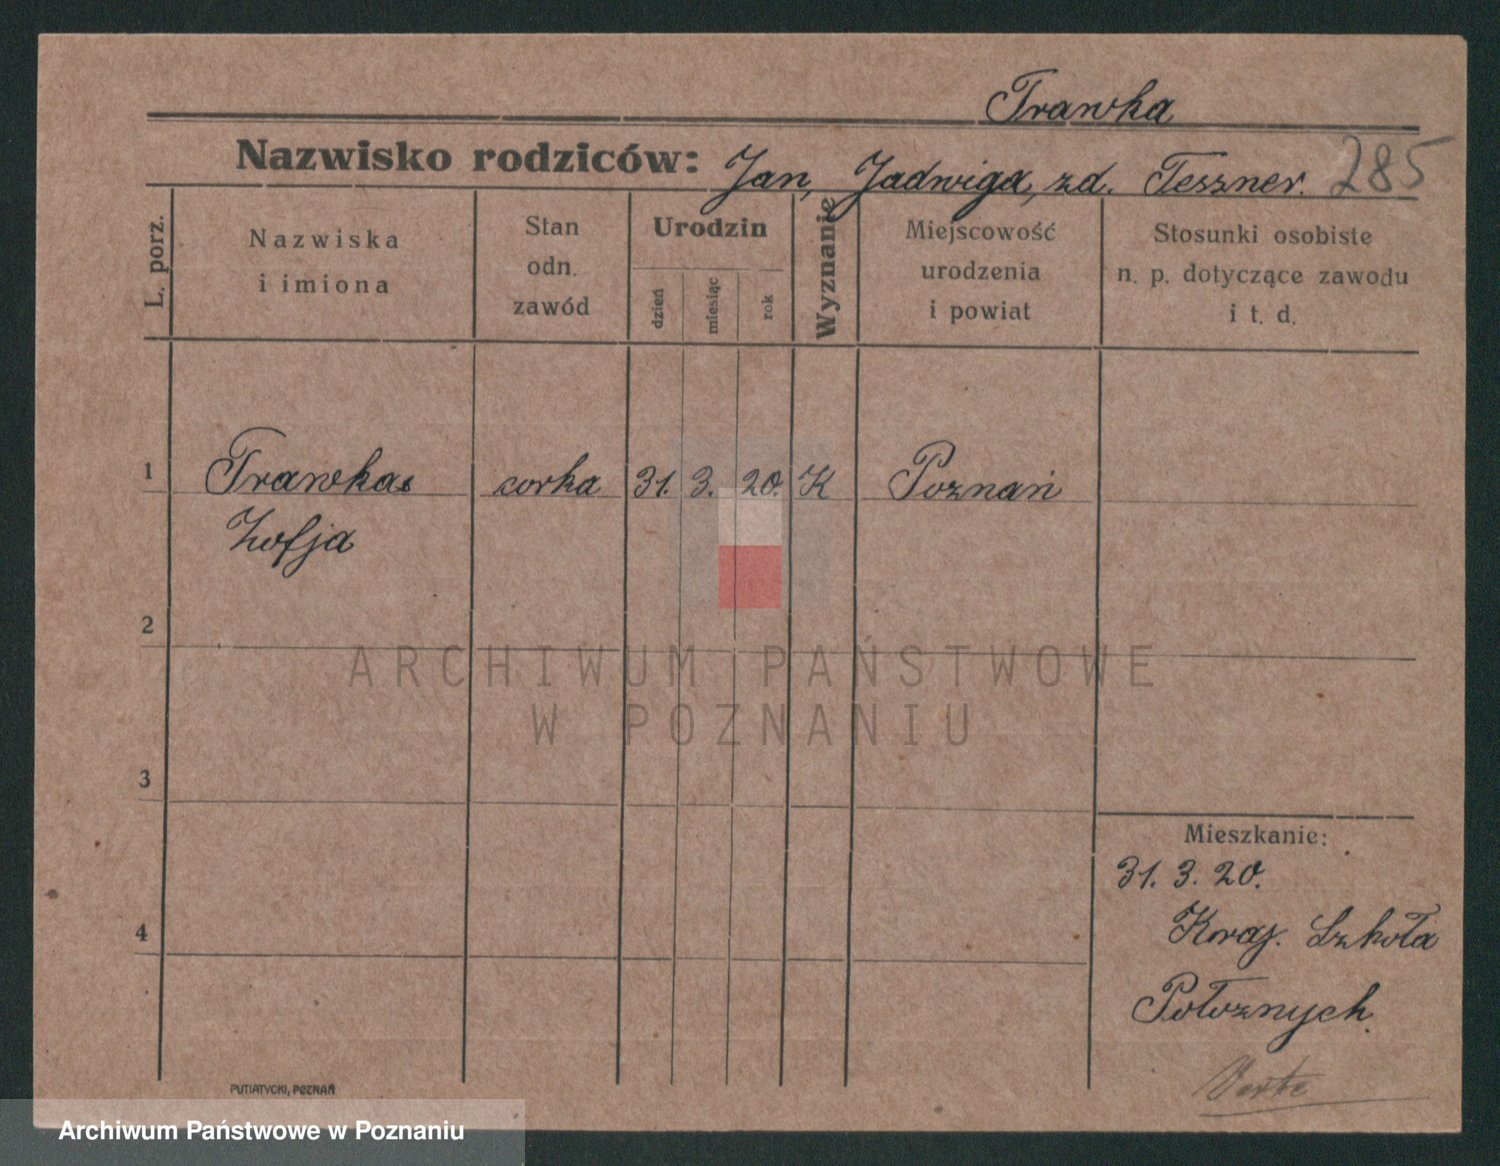 Trawka
Nazwisko rodziców: Jan, Jadwiga, zd. Teszner. 285
L. porz.
Nazwiska
i imiona
Stan
odn.
zawód
Urodzin
dzień
miesiąc
rok
Wyznanie
Miejscowość
urodzenia
i powiat
Stosunki osobiste
n. p. dotyczące zawodu
i t. d.
1 Trawka corka 31. 3. 20. K Poznań
Zofja
2
ARCHIWUM PAŃSTWOWE
W POZNANIU
3
Mieszkanie:
31. 3. 20.
4
Kraj. Szkoła
Położnych.
PUTIATYCKI, POZNAŃ
Archiwum Państwowe w Poznaniu